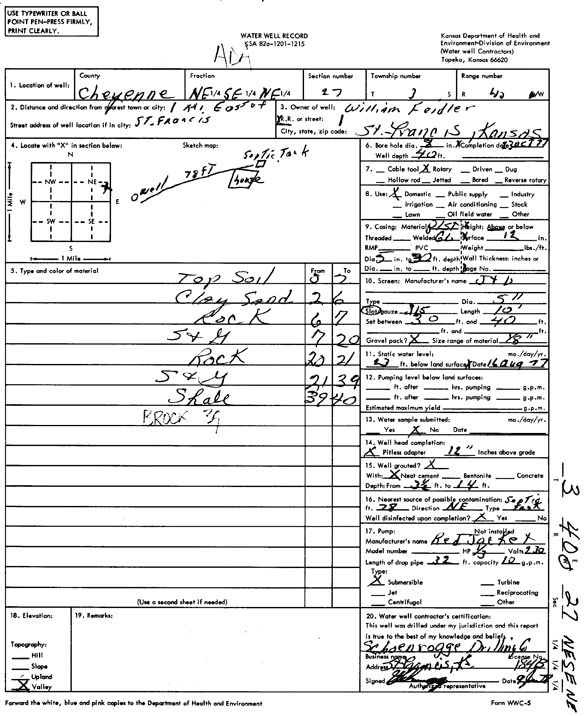 USE TYPEWRITER OR BALL
POINT PEN-PRESS FIRMLY,
PRINT CLEARLY.
WATER WELL RECORD
KSA 82a-1201-1215
Kansas Department of Health and
Environment-Division of Environment
(Water well Contractors)
Topeka, Kansas 66620
1. Location of well:
County
Cheyenne
Fraction
NE 1/4 SE 1/4 NE 1/4
Section number
27
Township number
T 3 S
Range number
R 40 W
2. Distance and direction from nearest town or city: 1 Mi. East of
Street address of well location if in city: St. Francis
3. Owner of well: William Feidler
R.R. or street: 1
City, state, zip code: St. Francis, Kansas
4. Locate with "X" in section below:
Sketch map:
N
NW NE
W E
SW SE
S
1 Mile
1 Mile
well 78 FT
Septic Tank
house
6. Bore hole dia. 8 in. Completion date
Well depth 40 ft.
7. Cable tool X Rotary Driven Dug
Hollow rod Jetted Bored Reverse rotary
8. Use: X Domestic Public supply Industry
Irrigation Air conditioning Stock
Lawn Oil field water Other
9. Casing: Material Height: Above or below
Threaded Welded Surface 12 in.
RMP PVC Weight lbs./ft.
Dia. 5 in. to ft. depth Wall Thickness: inches or
Dia. in. to ft. depth gage No.
5. Type and color of material From To
Top Soil 0 2
Clay Sand 2 6
Rock 6 7
S & G 7 20
Rock 20 21
S & G 21 39
Shale 39 40
BROCK 39
10. Screen: Manufacturer's name
Type Dia. 5"
Slot/gauze Length 10'
Set between 30 ft. and 40 ft.
ft. and ft.
Gravel pack? X Size range of material
11. Static water level: mo./day/yr.
23 ft. below land surface Date 16 Aug 77
12. Pumping level below land surfaces:
ft. after hrs. pumping g.p.m.
ft. after hrs. pumping g.p.m.
Estimated maximum yield g.p.m.
13. Water sample submitted: mo./day/yr.
Yes X No Date
14. Well head completion:
X Pitless adapter 12" Inches above grade
15. Well grouted? X
With: X Neat cement Bentonite Concrete
Depth: From 3 1/2 ft. to 14 ft.
16. Nearest source of possible contamination: Septic
ft. 78 Direction NE Type Tank
Well disinfected upon completion? X Yes No
17. Pump: Not installed
Manufacturer's name Red Jacket
Model number HP 1/3 Volts 230
Length of drop pipe 32 ft. capacity 10 g.p.m.
Type:
X Submersible Turbine
Jet Reciprocating
Centrifugal Other
(Use a second sheet if needed)
18. Elevation:
Topography:
Hill
Slope
Upland
X Valley
19. Remarks:
20. Water well contractor's certification:
This well was drilled under my jurisdiction and this report
is true to the best of my knowledge and belief.
Schoenrogge Drilling Co
Business name License No.
Address St. Francis, Ks.
Signed Date
Authorized representative
Forward the white, blue and pink copies to the Department of Health and Environment
Form WWC-5
T 3 R 40 W Sec 27 NE SE NE
1/4 1/4 1/4